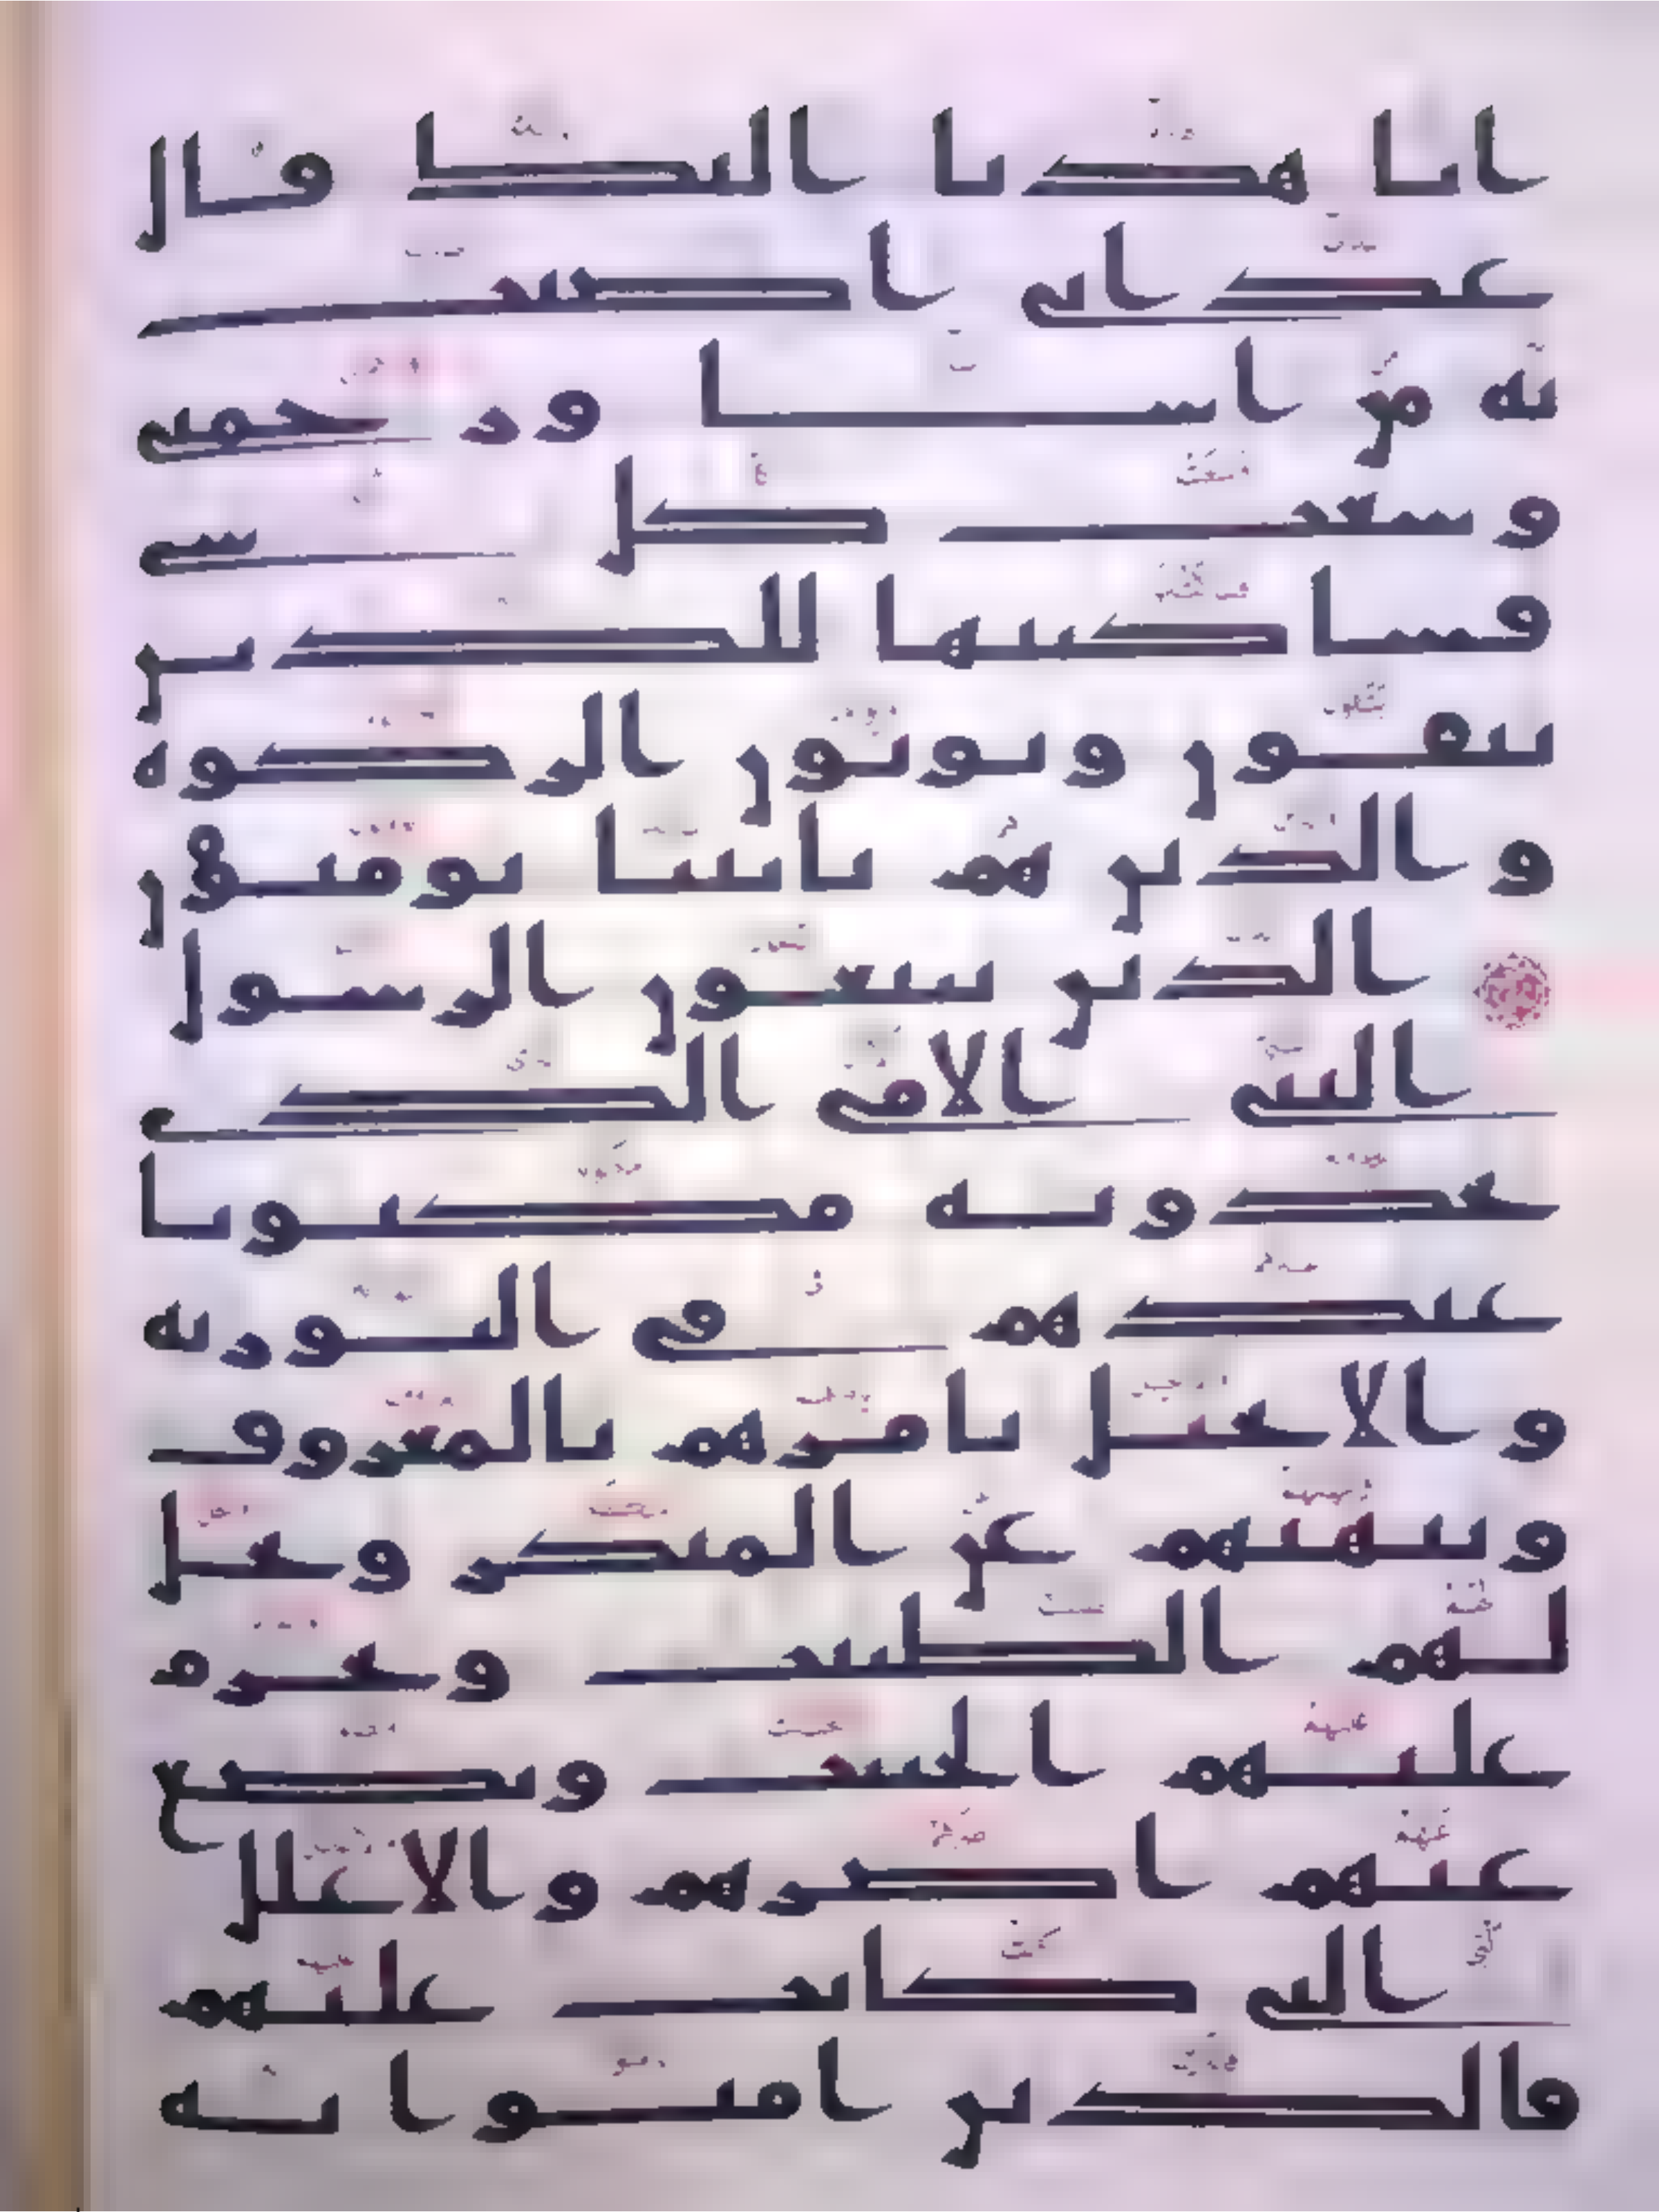 انا هدنا اليك قال
عذابي اصيب
به من اشا ورحمتي
وسعت كل شي
فساكتبها للذين
يتقون ويوتون الزكوة
والذين هم بايتنا يومنون
الذين يتبعون الرسول
النبي الامي الذي
يجدونه مكتوبا
عندهم في التورية
والانجيل يامرهم بالمعروف
وينهيهم عن المنكر ويحل
لهم الطيبت ويحرم
عليهم الخبيث ويضع
عنهم اصرهم والاغلل
التي كانت عليهم
فالذين امنوا به